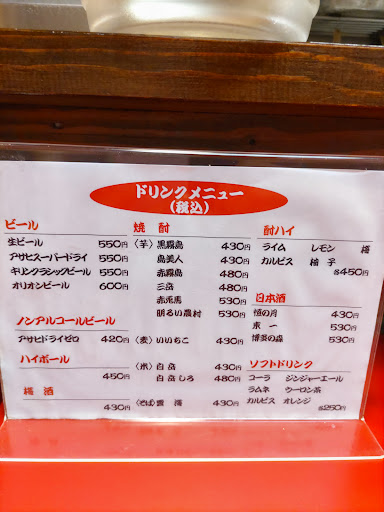 ドリンクメニュー
(税込)
ビール
生ビール 550円
アサヒスーパードライ 550円
キリンクラシックビール 550円
オリオンビール 600円
ノンアルコールビール
アサヒドライゼロ 420円
ハイボール
450円
梅酒
430円
焼酎
〈芋〉黒霧島 430円
島美人 430円
赤霧島 480円
三岳 480円
赤兎馬 530円
明るい農村 530円
〈麦〉いいちこ 430円
〈米〉白岳 430円
白岳しろ 480円
〈そば〉雲海 430円
酎ハイ
ライム レモン 梅
カルピス 柚子
各450円
日本酒
恒の月 430円
東一 530円
博多の森 530円
ソフトドリンク
コーラ ジンジャーエール
ラムネ ウーロン茶
カルピス オレンジ
各250円